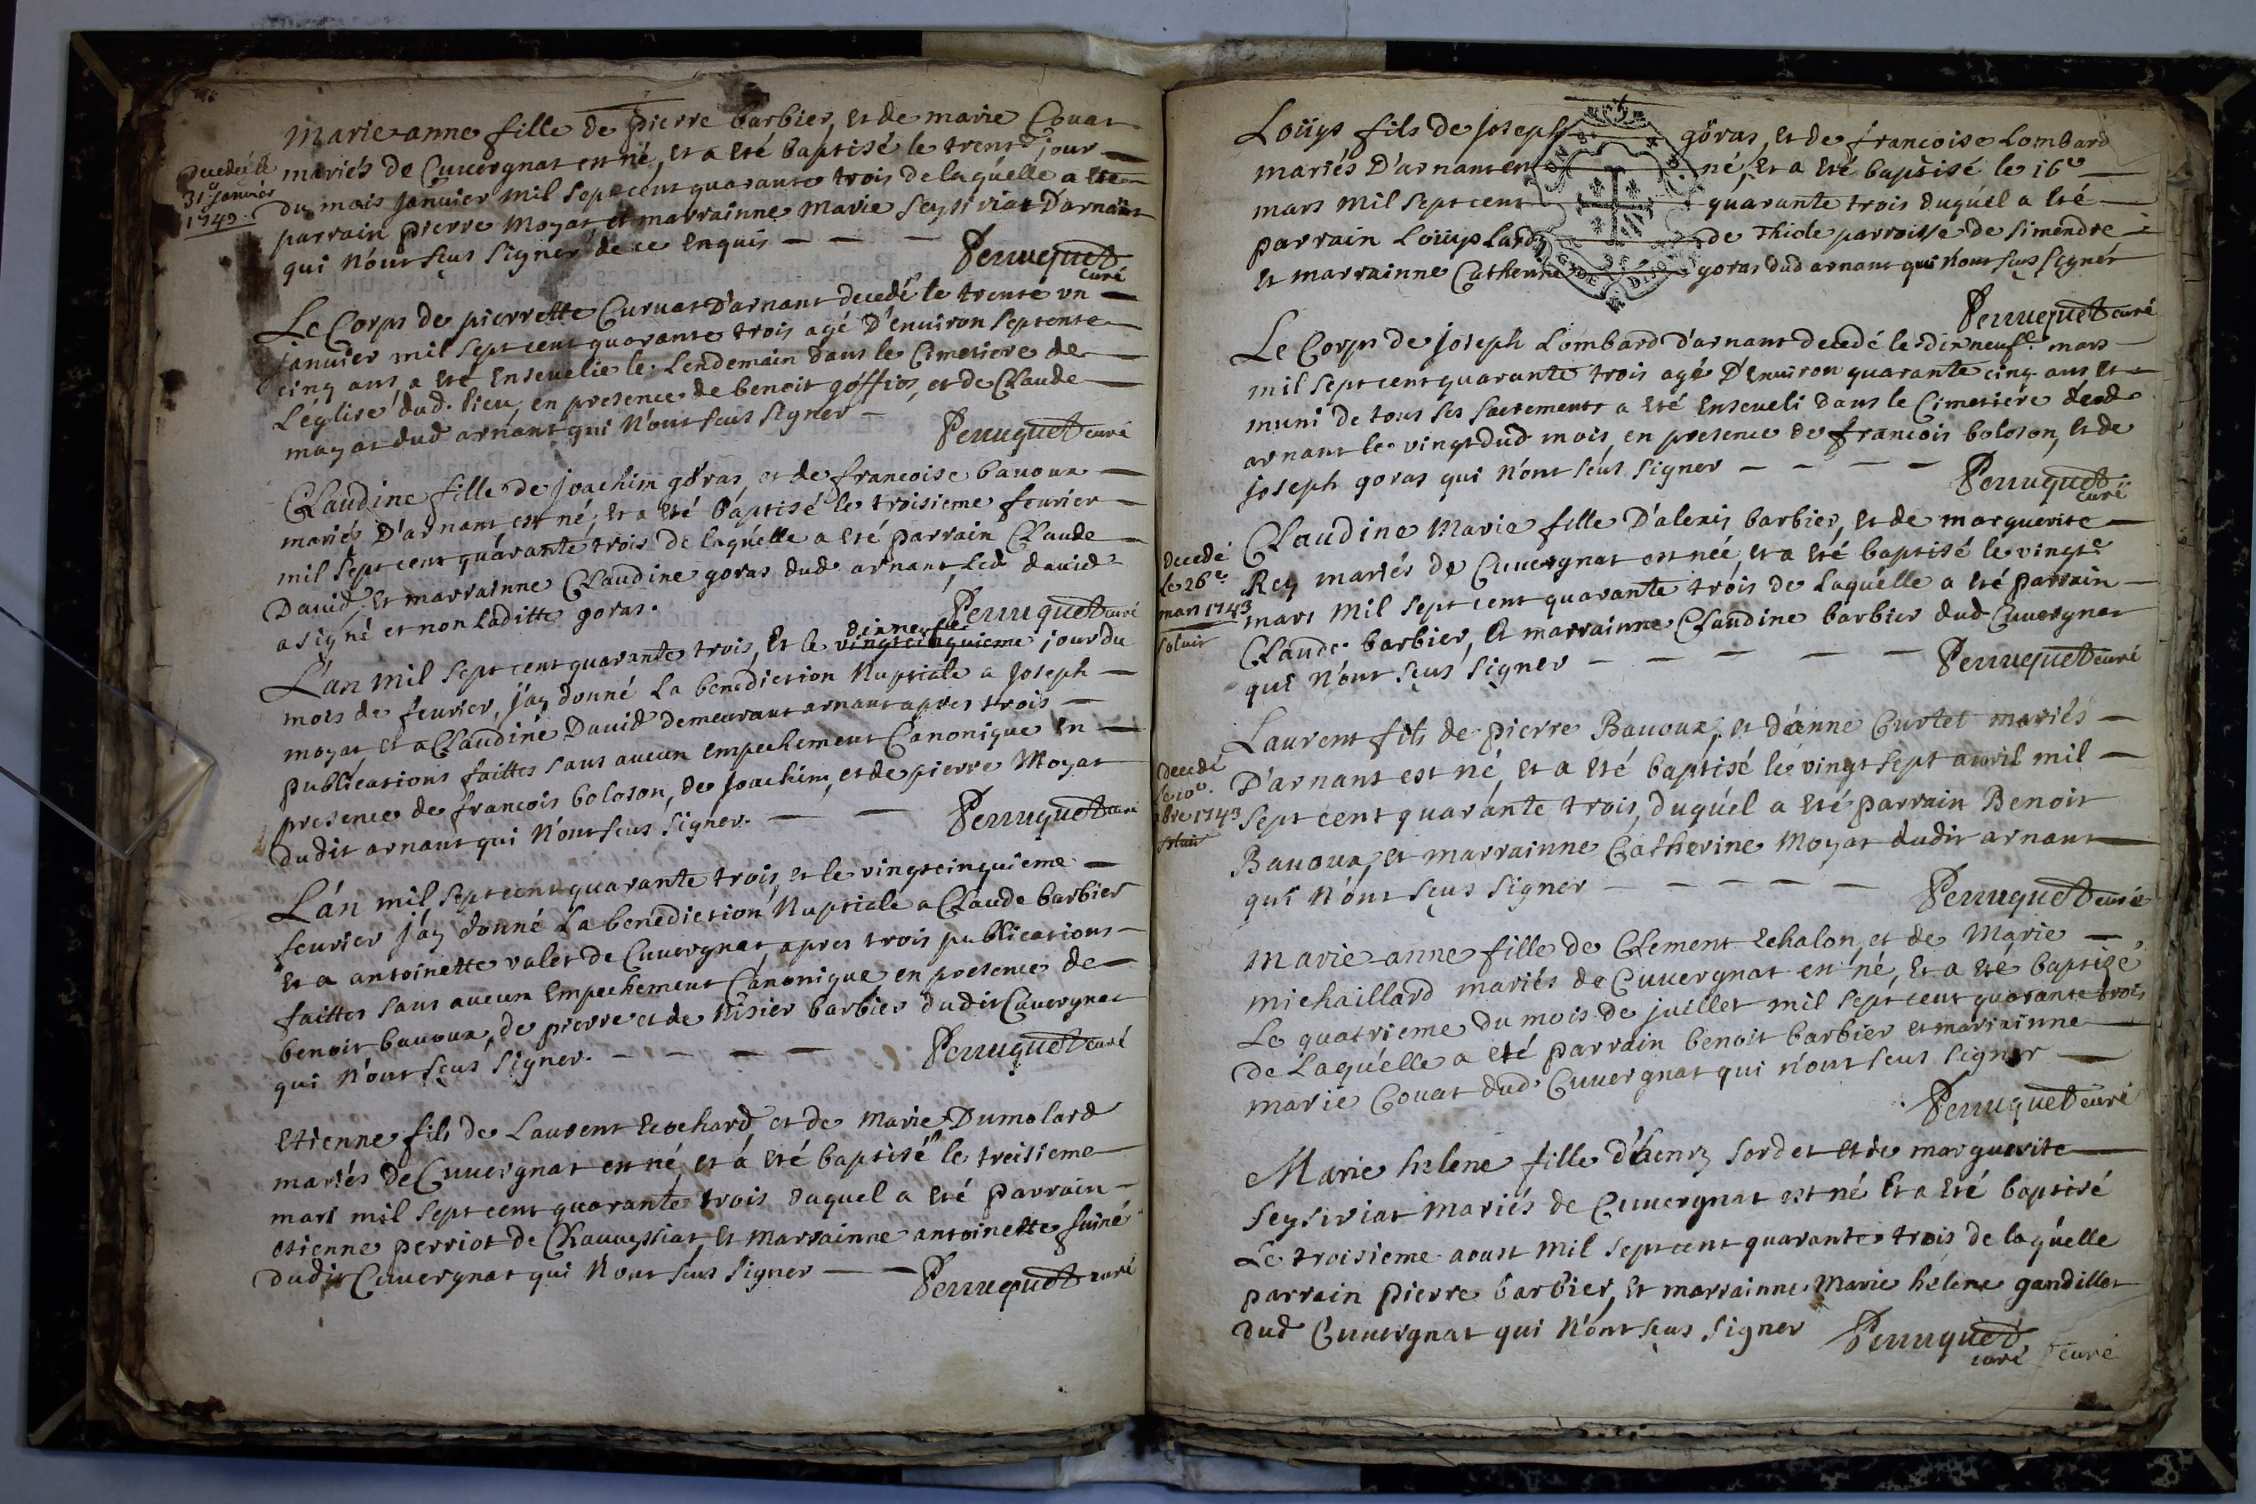 Marie anne fille de pierre barbier, et de marie Couat
mariés de Cuuergnat est né, et a été baptisé le trent.e jour
du mois januier mil sept cent quarante trois de laquélle a été
parrain pierre Moyat, et marrainne Marie Seysiriat D'arnant
qui n'ont sçus signer de ce enquis
Perruquet
curé
Decedé le
31e januier
1743.
Le Corps de pierrette Curuat D'arnant decedé le trente un
januier mil sept cent quarante trois agé D'enuiron septente
cinq ans, a été enseuelie le lendemain dans le Cimetiere de
L'église dud. lieu, en presence de benoit goffios, et de Claude
moyat dud arnant qui n'ont sçus signer
Perruquet curé
Claudine fille de joachim goras, et de francoise bauoux
mariés D'arnant est né, et a été baptisé le troisieme feurier
mil sept cent quarante trois de laquélle a été parrain Claude
Dauid, et marrainne Claudine goras dud arnant, led dauid
a signé et non laditte goras.
Perruquet curé
L'an mil sept cent quarante trois, et le vingtcinquieme jour du
dixneufe
mois de feurier, j'ay donné la benediction Nuptiale a joseph
moyat, et a Claudine Dauid demeurant arnant apres trois
publications faittes sans aucun empechement Canonique en
presence de francois boloson, de joachim, et de pierre Moyat
dudit arnant qui n'ont sçus signer.
Perruquet curé
L'an mil sept cent quarante trois, et le vingtcinquieme
feurier j'ay donné la benediction Nuptiale a Claude barbier
et a antoinette valet de Cuuergnat, apres trois publications
faittes sans aucun empechement Canonique en presence de
benoit bauoux, de pierre et de Nisier barbier dudit Cuuergnat
qui n'ont sçus signer.
Perruquet curé
Etienne fils de Laurent Ecochard et de Marie Dumolard
mariés de Cuuergnat est né, et a été baptisé le treisieme
mars mil sept cent quarante trois duquel a été parrain
etienne perriot de Chauuyssiat, et marrainne antoinette
dudit Cuuergnat qui n'ont sçus signer
Perruquet curé
Loüys fils de joseph goras, et de francoise Lombard
mariés D'arnant est né, et a été baptisé le 16e
mars mil sept cent quarante trois duquél a été
parrain Loüys de Thiole parroisse de simendre
et marrainne Catherine goras dud arnant qui n'ont sçus signer
Perruquet curé
Le Corps de joseph Lombard D'arnant decedé le dixneufe. mars
mil sept cent quarante trois agé D'enuiron quarante cinq ans et
muni de tous ses sacrements a été enseueli dans le Cimetiére dud
arnant le vingt dud mois, en presence de francois boloson, et de
joseph goras qui n'ont sçus signer
Perruquet
curé
Claudine Marie fille D'alexis barbier, et de marguerite
Rey mariés de Cuuergnat est née, et a été baptisé le vingte
mars mil sept cent quarante trois de laquélle a été parrain
Claude barbier, et marrainne Claudine barbier dud Cuuergnat
qui n'ont sçus signer
Perruquet curé
decedé
le 26e
mars 1743
Laurent fils de pierre Bauoux, et d'anne Curtet mariés
D'arnant est né, et a été baptisé le vingt sept auril mil
sept cent quarante trois, duquél a été parrain Benoit
Bauoux, et marrainne Catherine Moyat dudit arnant
qui n'ont sçus signer
Perruquet curé
decedé
le 10e.
8bre 1743
Marie anne fille de Clement Echalon, et de Marie
michaillard mariés de Cuuergnat est né, et a été baptisé
Le quatrieme du mois de juillet mil sept cent quarante trois
de Laquélle a été parrain benoit barbier et marrainne
marie Couat dud. Cuuergnat qui n'ont sçus signer
Perruquet curé
Marie helene fille d'henry sordet et de marguerite
Seysiriat mariés de Cuuergnat est né et a été baptisé
Le troisieme aoust mil sept cent quarante trois de laquélle
parrain pierre barbier, et marrainne Marie helene gandillet
dud Cuuergnat qui n'ont sçus signer
Perruquet
curé
curé